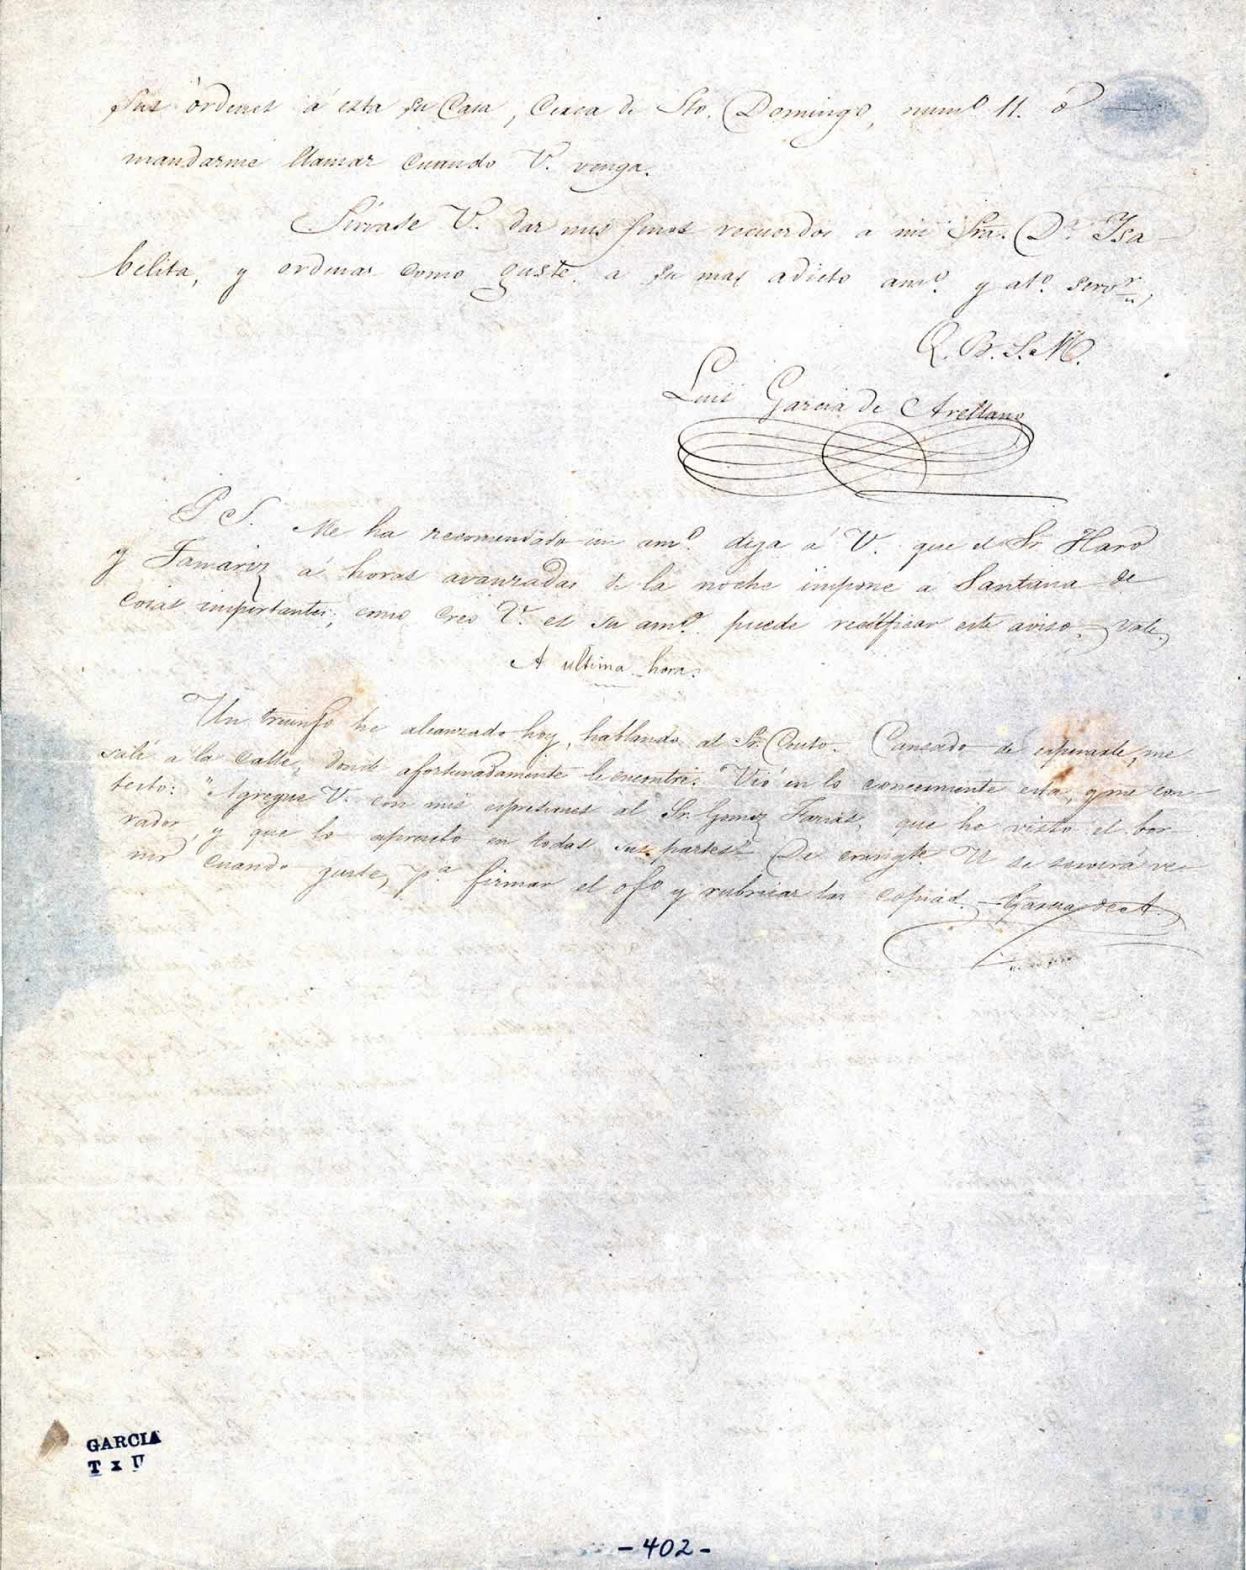 sus órdenes á esta su Casa, Cerca de Sto. Domingo, numº 11. ó
mandarme llamar cuando V. venga.
Sírvase V. dar mis finos recuerdos a mi Sra. Dª Ysa-
belita, y ordenar como guste a su mas adicto amº. y atº. servr.,
Q. B. S. M.
Luis Garcia de Arellano
P. S. Me ha recomendado un amº. diga á V. que el Sr. Haro
y Tamariz á horas avanzadas de la noche impone a Santana de
cosas importantes; como creo V. es su amº. puede rectificar este aviso. Vale.
A ultima hora.
Un triunfo he alcanzado hoy, hablando al Sr. Couto. Cansado de esperarle, me
salí a la Calle, donde afortunadamente le encontré. Vió en lo concerniente esta, y me con-
testo: "Agregue V. con mis espresiones al Sr. Gomez Farias, que he visto el bor-
rador, y que lo apruebo en todas sus partes." De consigte. V. se servirá ve-
nir cuando guste, pª firmar el ofº y rubricar las copias. Garcia de A.
GARCIA
T x U
-402-